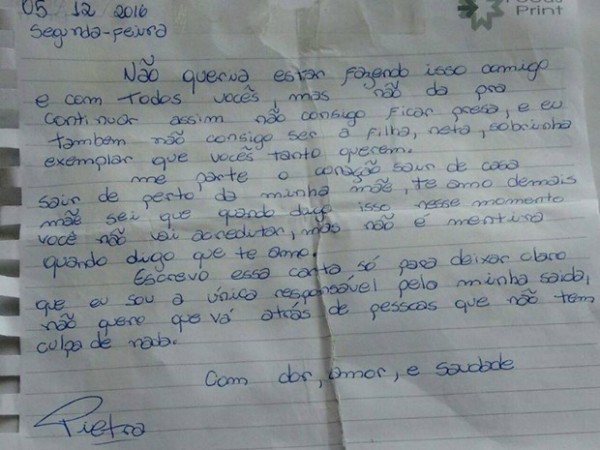 05 / 12 2016
Print
Segunda-Feira
Não queria estar fazendo isso comigo
e com todos vocês mas não da pra
continuar assim não consigo ficar presa, e eu
também não consigo ser a filha, neta, sobrinha
exemplar que vocês tanto querem.
me parte o coração sair de casa
sair de perto da minha mãe, te amo demais
mãe sei que quando digo isso nesse momento
você não vai acreditar, mas não é mentira
quando digo que te amo.
Escrevo essa carta só para deixar claro
que eu sou a única responsável pela minha saida,
não quero que vá atrás de pessoas que não tem
culpa de nada.
Com dor, amor, e saudade
Pietra